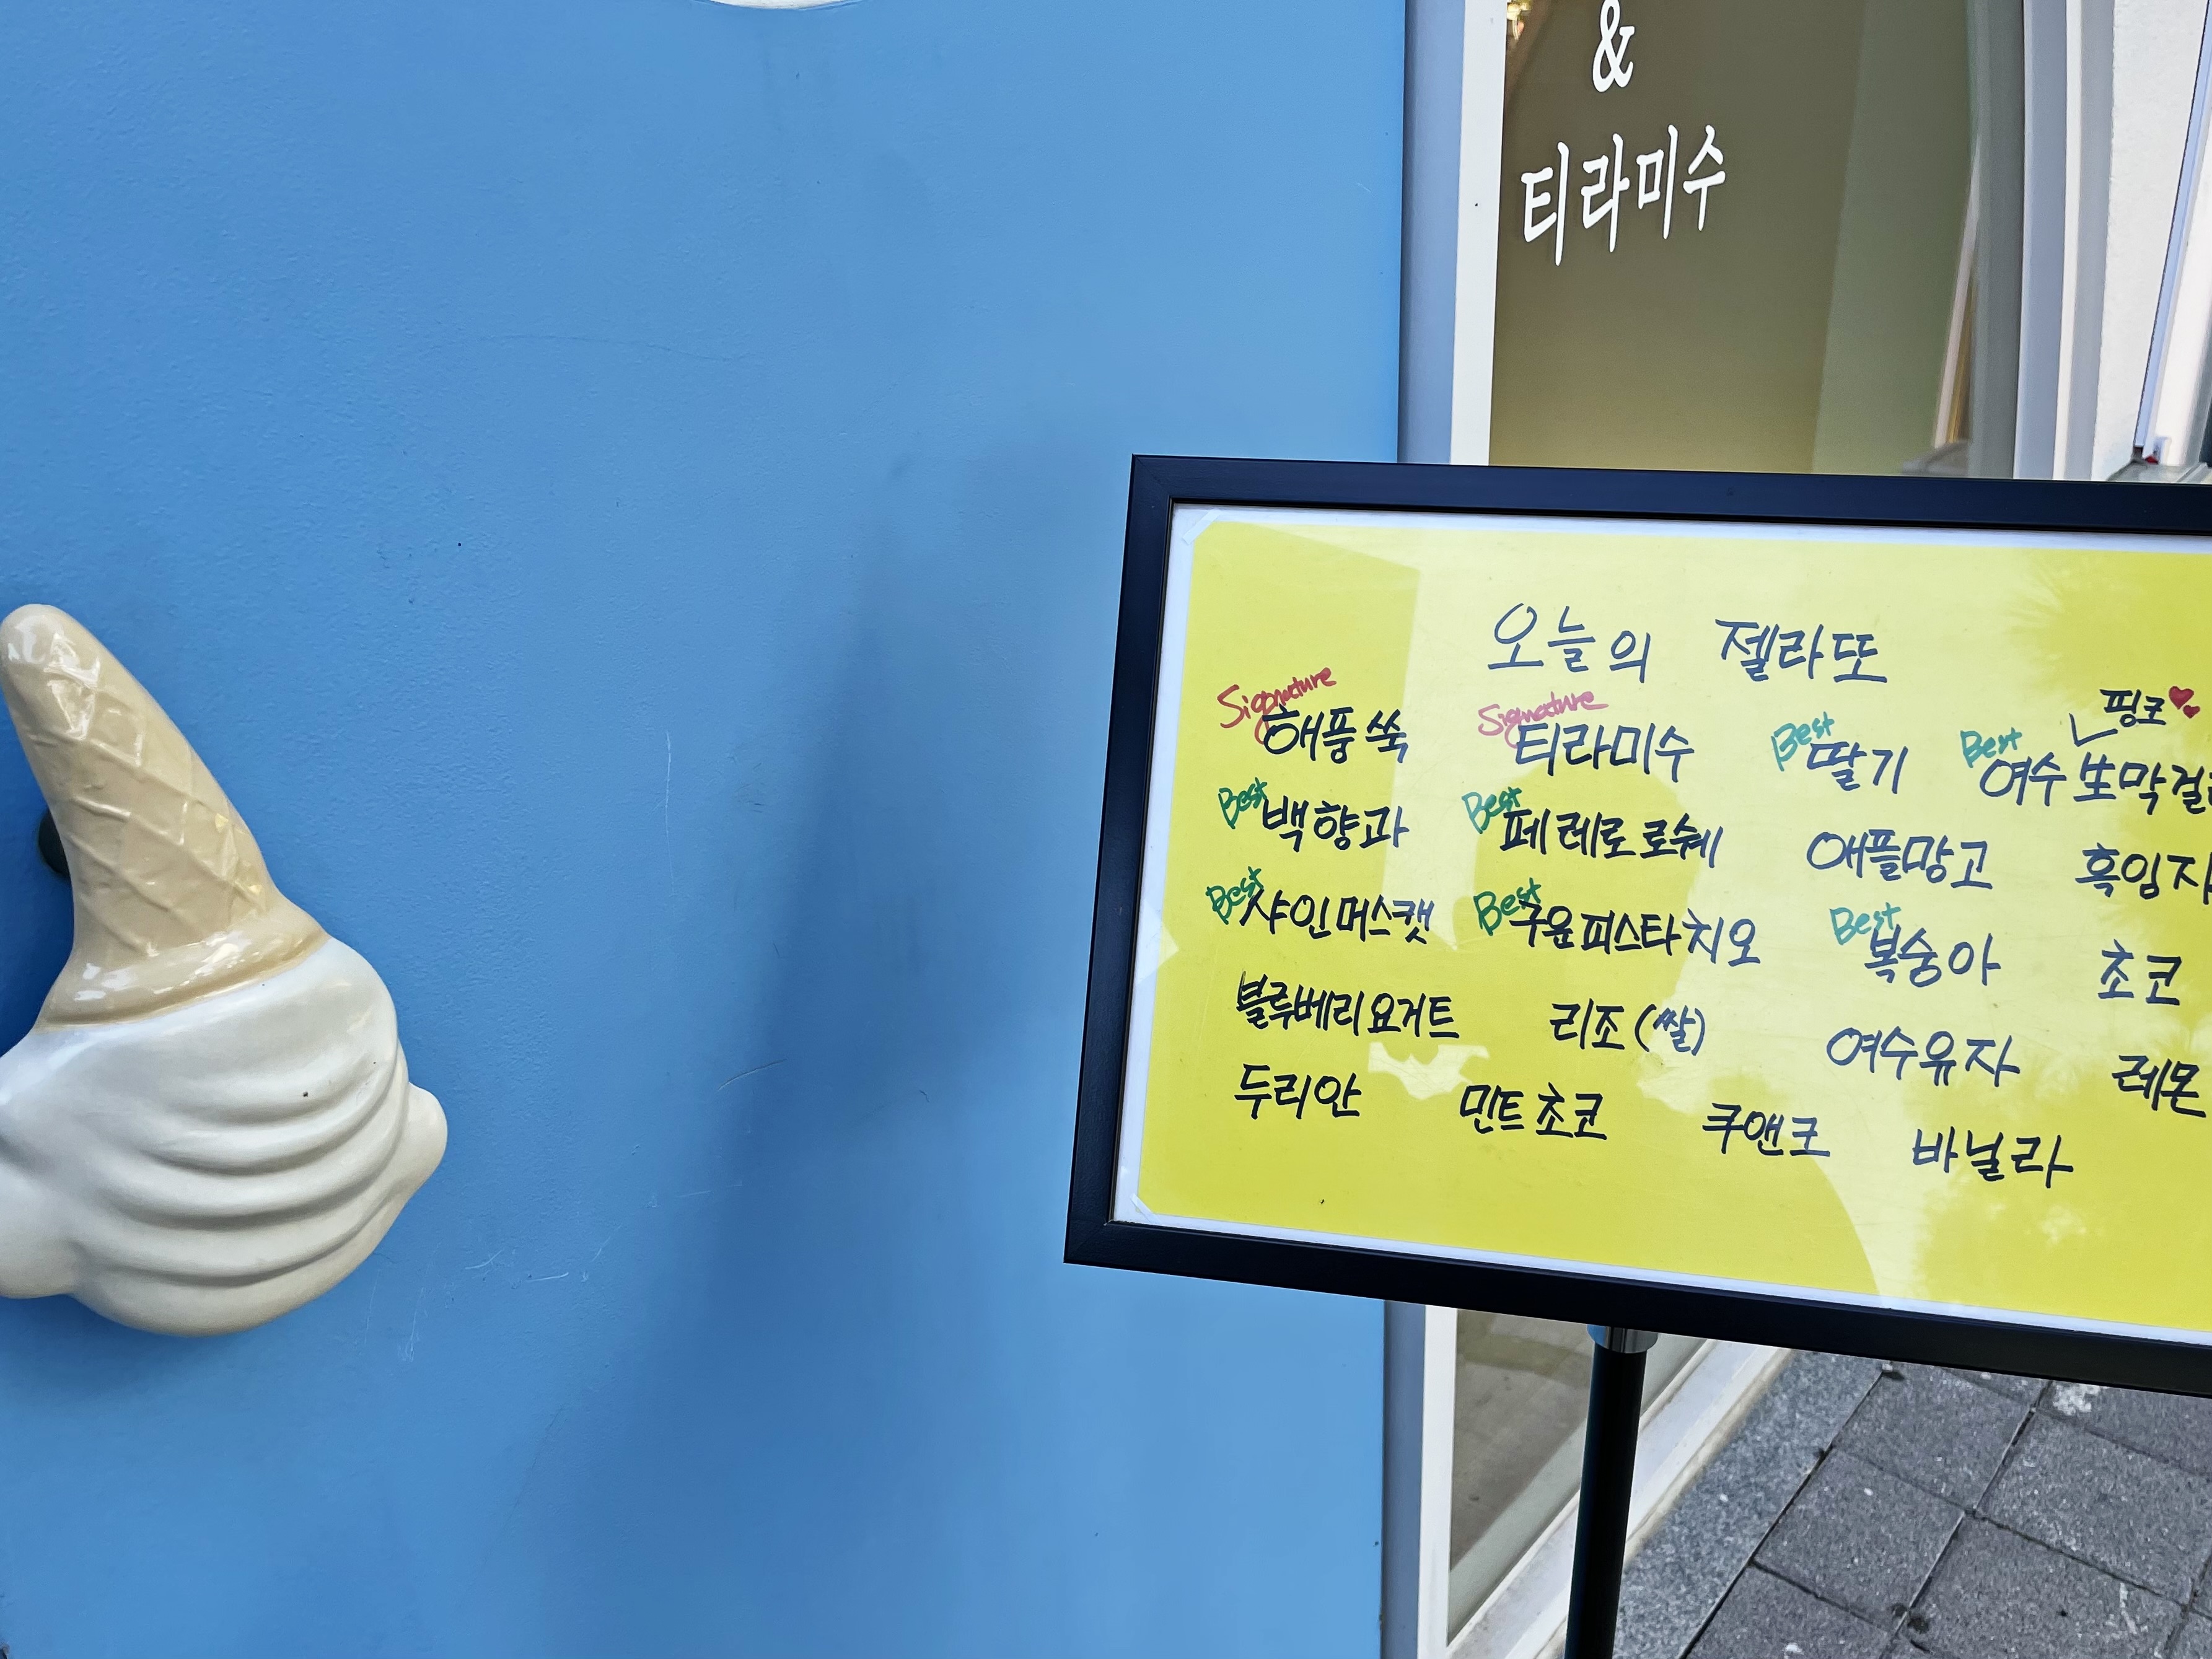 &
티라미수
오늘의 젤라또
핑크
Signature 해풍쑥 Signature 티라미수 Best 딸기 Best 여수 뽀막걸
Best 백향과 Best 페레로로쉐 애플망고 흑임자
Best 샤인머스캣 Best 구운피스타치오 Best 복숭아 초코
블루베리요거트 리조(쌀) 여수유자 레몬
두리안 민트초코 쿠앤크 바닐라